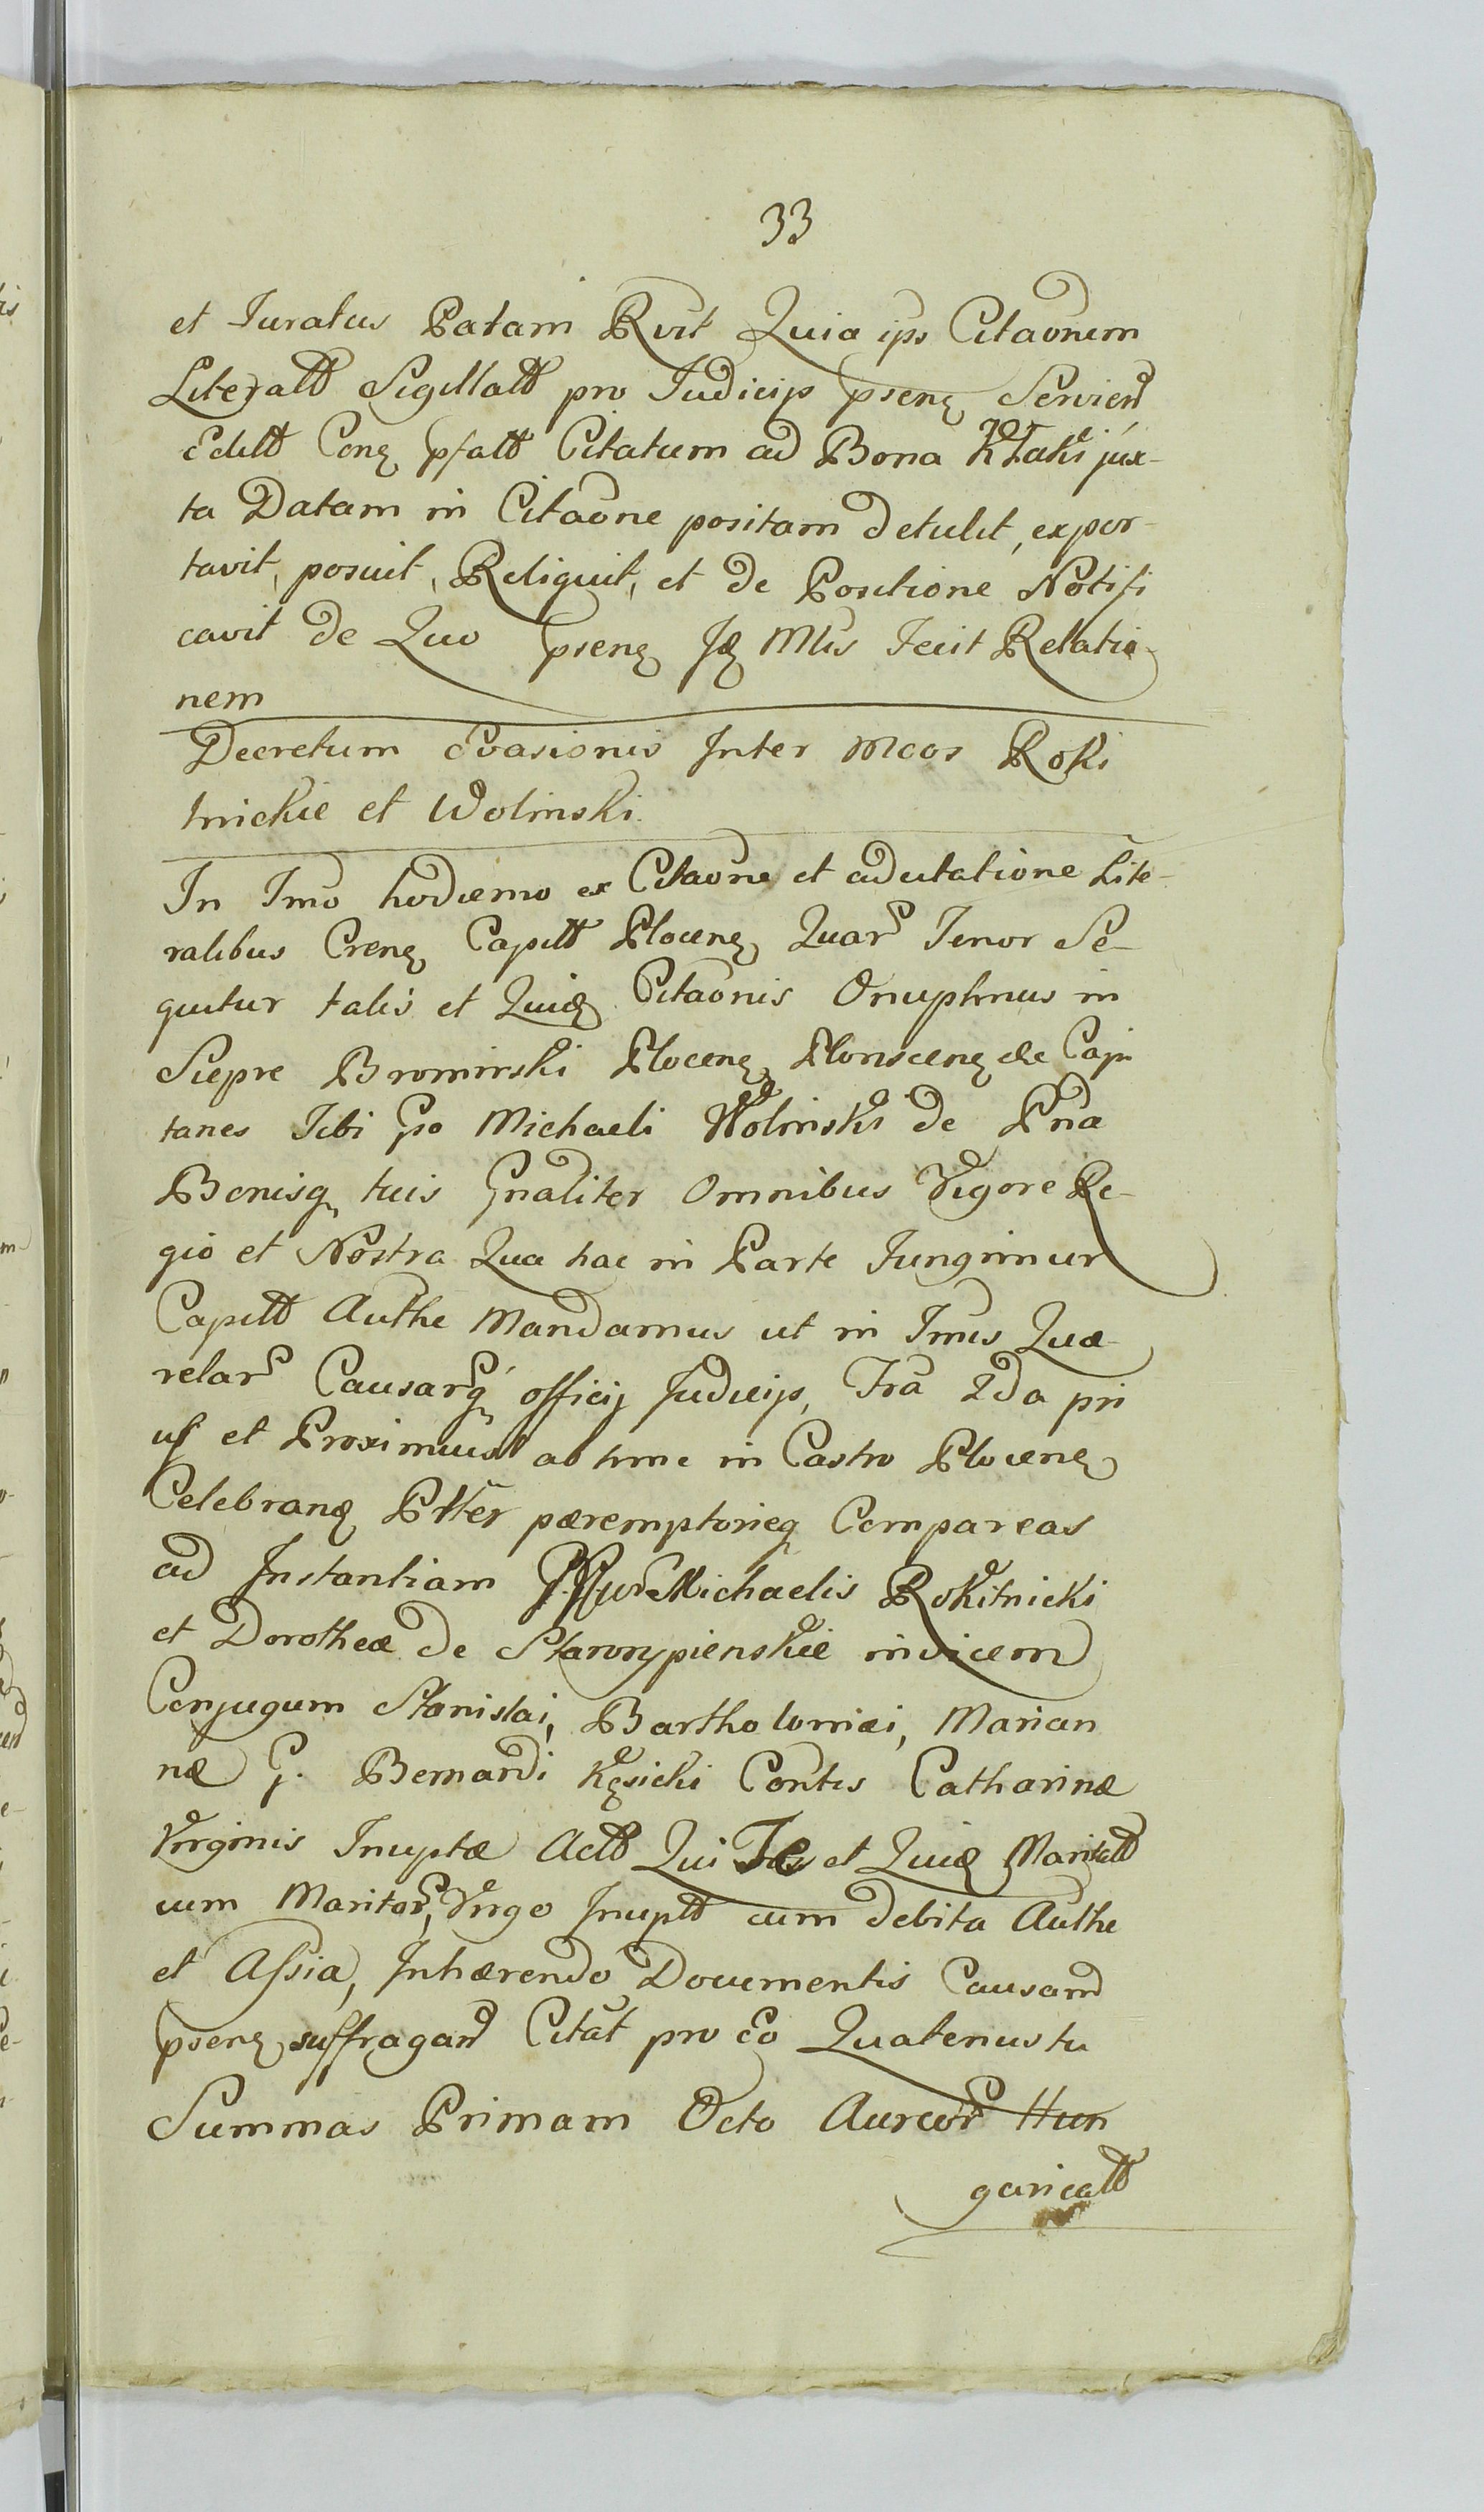 33
et Juratus Palam Rvit Quia ips Citaõnem
Literatt Sigillatt pro Judicijs psenę Serviend
Editt Conę psatt Citatum ad Bona Kłaki jux-
ta Datam in Citaõne positam detulit, expor-
tavit, posuit, Reliquit, et de Positione Notifi
cavit de Quo psenę Mlis Fecit Relatio-
nem
Decretum Evasionis Inter Mcos Roki
tnickie et Wolinski.
In Tmõ hodierno ex Citaõne et adcitatione Lite-
ralibus Crenę Capitt Plocenę Quar Tenor Se-
quitur talis et Quidę Citaõnis Onuphrius in
Siepre Bromirski Plocenę Plonscenę &c Capi
taneus Tibi Gso Michaeli Wolinski de Pna
Bonisq tuis Gnaliter Omnibus Vigore Re-
gio et Nostra Qua hac in Parte Jungimur
Capitt Authe Mandamus ut in Tmis Quæ-
relar Causarq officij Judicijs, Fra 2da pri
us et Proximius ab hinc in Castro Plocenę
Celebrandę Ptter pæremptorieq Compareas
ad Instantiam Michaelis Rokitnicki
et Dorotheæ de Staroszypienskie invicem
Conjugum Stanislai, Bartholomæi, Marian
næ G. Bernardi Kęsicki Contis Catharinæ
Virginis Inuptæ Actt Qui et Quidę Maritatt
cum Maritor, Virgo Inuptt cum debita Authe
et Assia, Inhærendo Documentis Causam
psenę suffragan Citãt pro Eo Quatenus tu
Summas Primam Octo Aureor Hun
garicatt